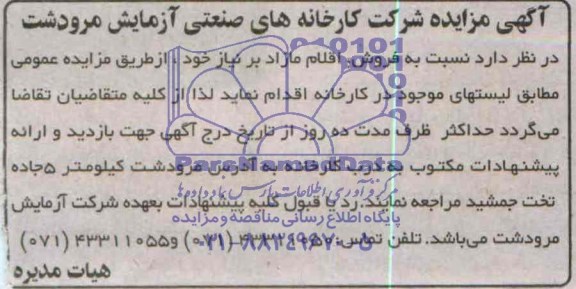 آگهی مزایده شرکت کارخانه های صنعتی آزمایش مرودشت
در نظر دارد نسبت به فروش اقلام مازاد بر نیاز خود، ازطریق مزایده عمومی
مطابق لیستهای موجود در کارخانه اقدام نماید لذا از کلیه متقاضیان تقاضا
می‌گردد حداکثر ظرف مدت ده روز از تاریخ درج آگهی جهت بازدید و ارائه
پیشنهادات مکتوب به درب کارخانه به آدرس مرودشت کیلومتر ۵جاده
تخت جمشید مراجعه نمایند.رد یا قبول کلیه پیشنهادات بعهده شرکت آزمایش
مرودشت می‌باشد. تلفن تماس: (۰۷۱) و۴۳۳۱۱۰۵۵ (۰۷۱)
هیات مدیره
ParsNamadData
پایگاه اطلاع رسانی مناقصه و مزایده